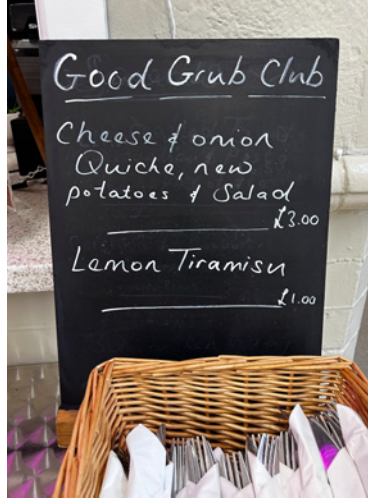 Good Grub Club
Cheese & onion
Quiche, new
potatoes & Salad
£3.00
Lemon Tiramisu
£1.00